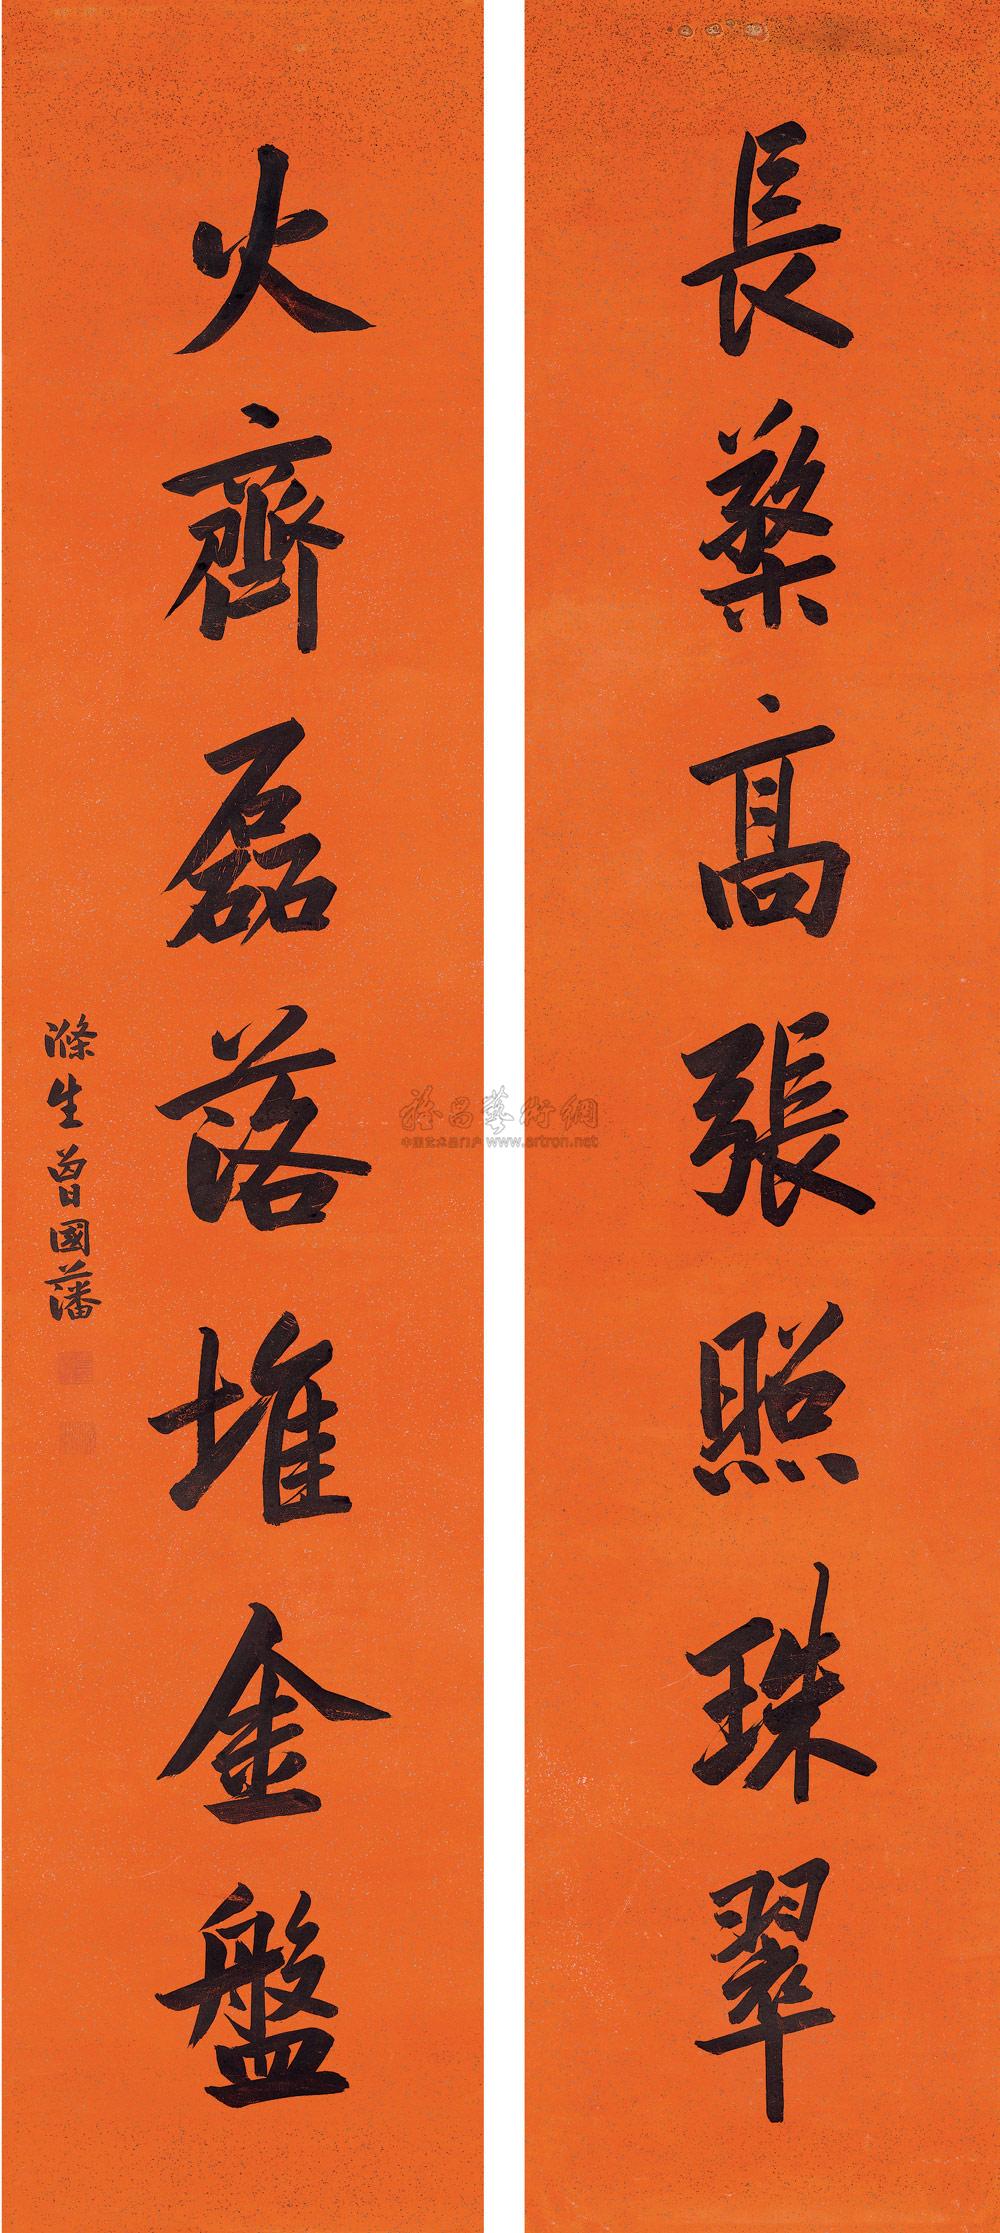 長檠高張照珠翠
火齊磊落堆金盤
滌生曾國藩
雅昌藝術網
中国艺术品门户 www.artron.net